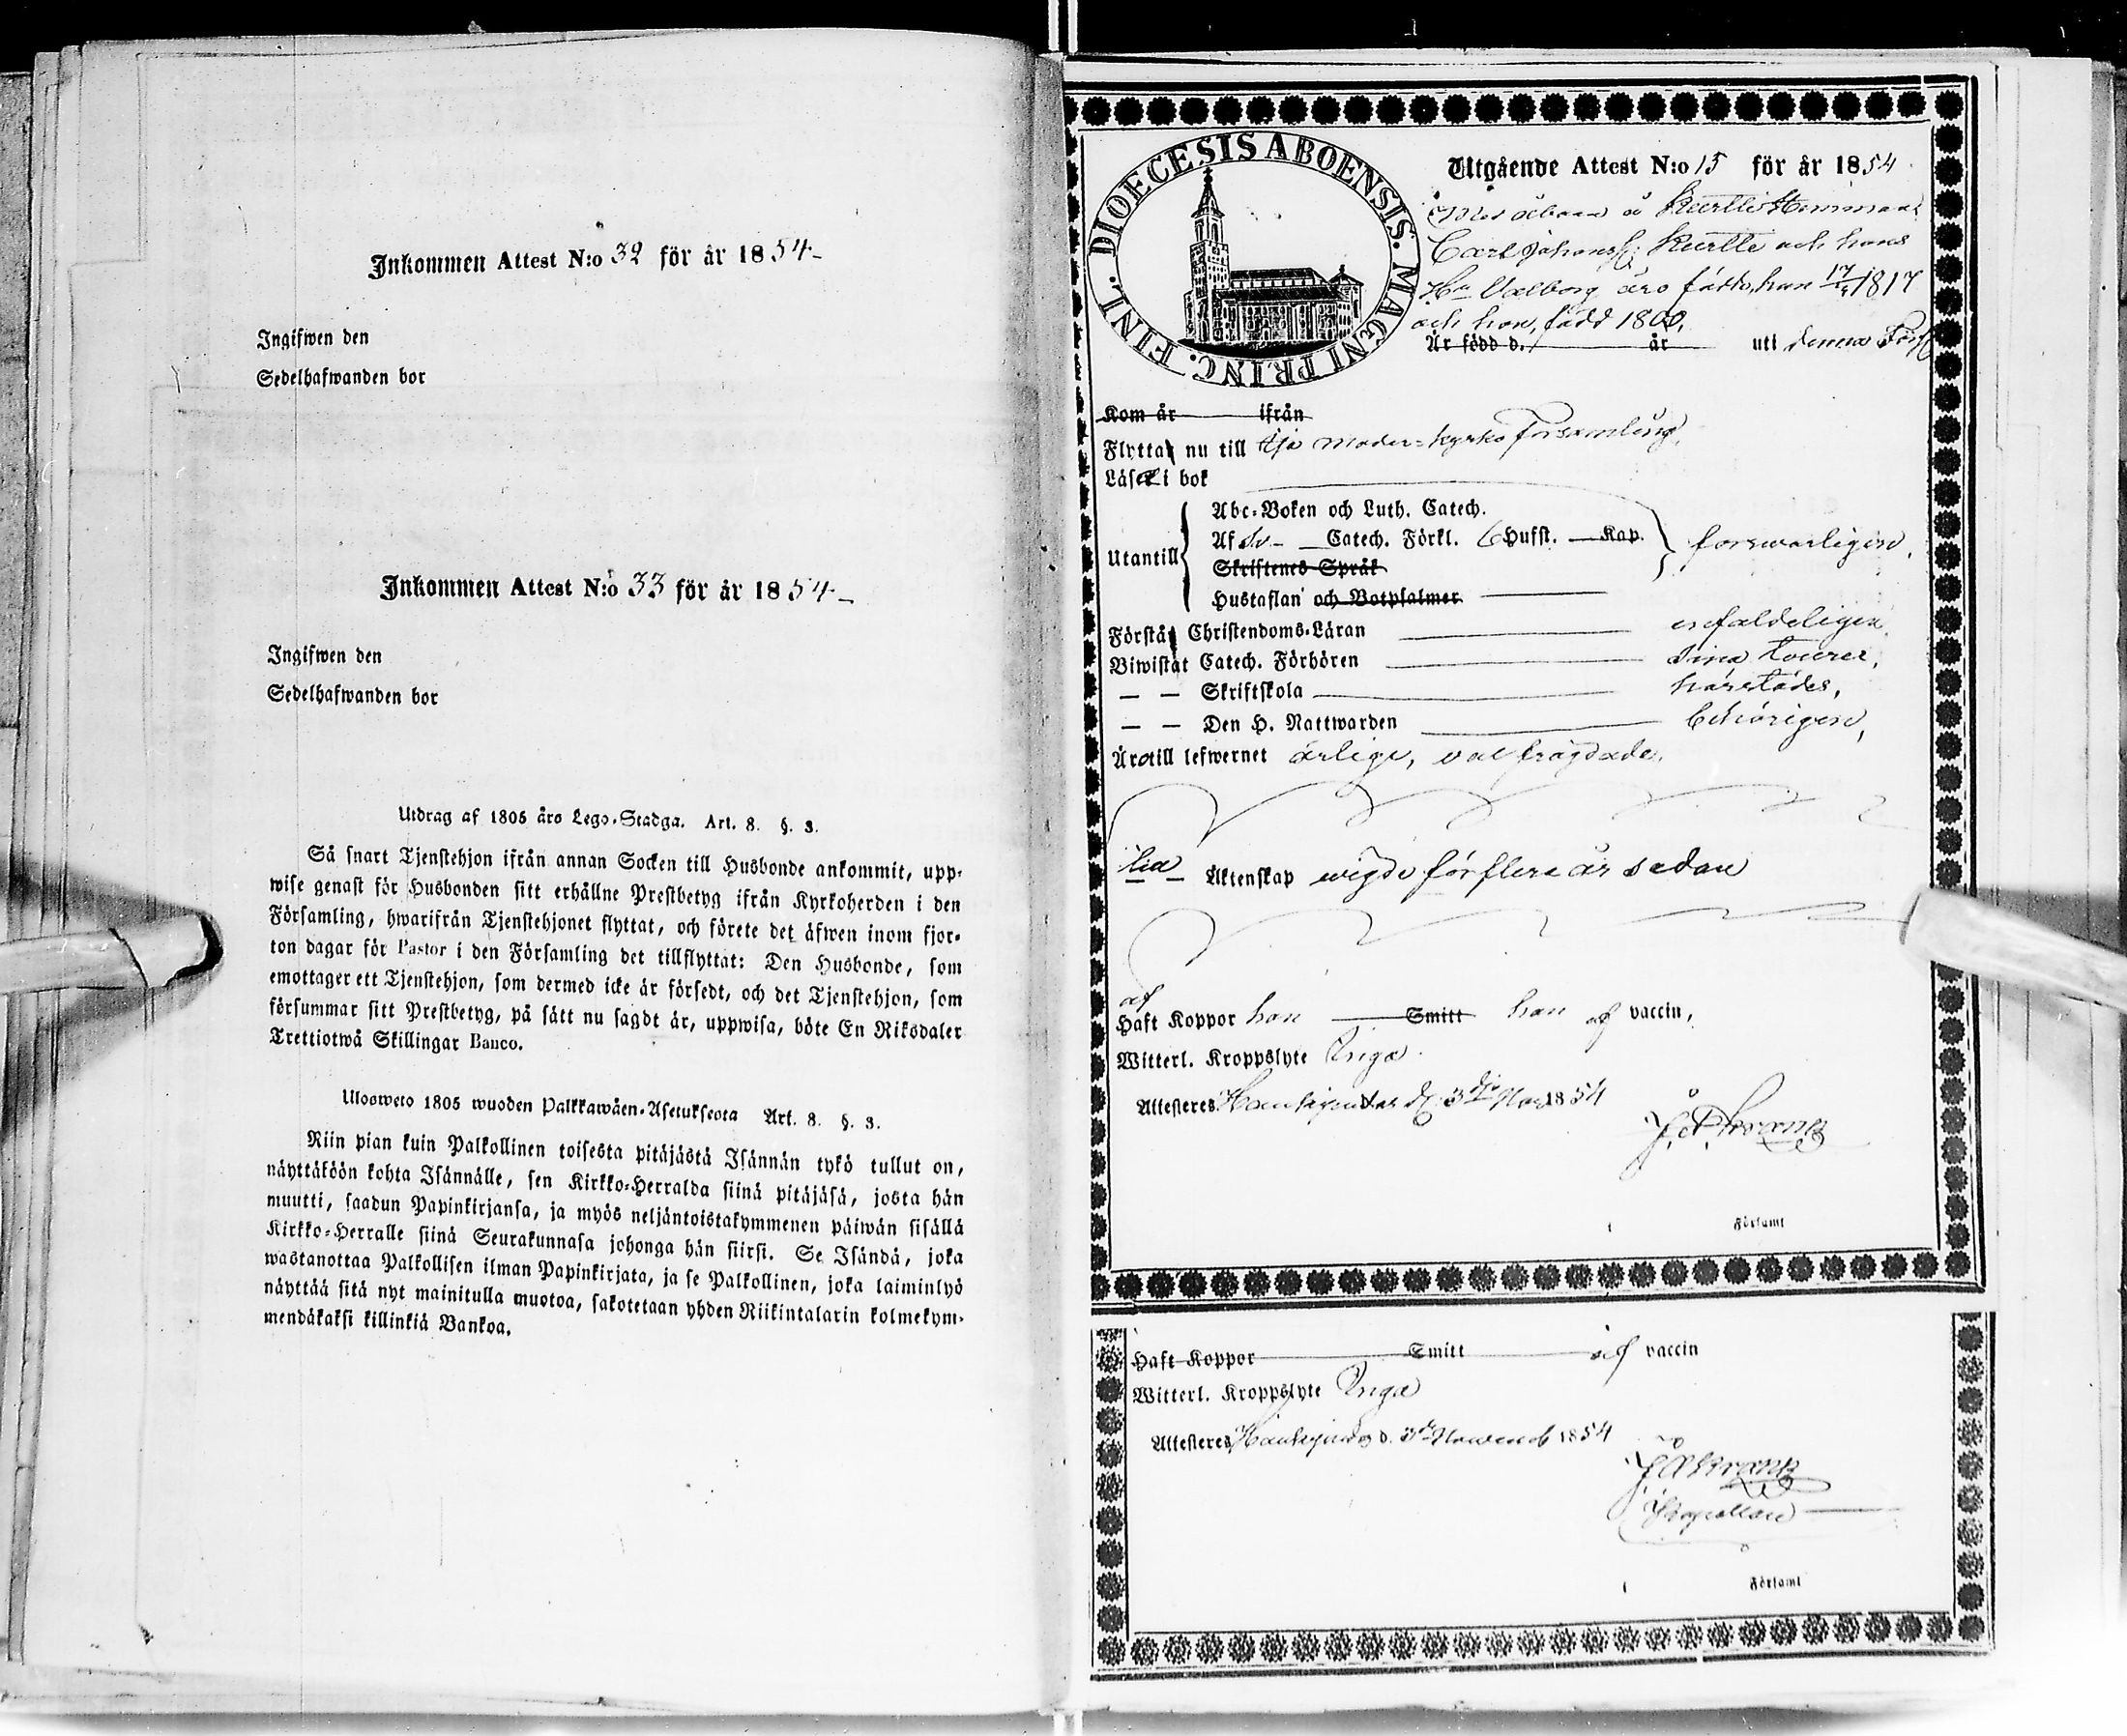 Inkommen Attest N:o 32 för år 1854-
Ingifwen den
Sedelhafwanden bor
Inkommen Attest N:o 33 för år 1854-
Ingifwen den
Sedelhafwanden bor
Utdrag af 1805 års Lego-Stadga. Art. 8. §. 3.
Så snart Tjenstehjon ifrån annan Socken till Husbonde ankommit, upp-
wise genast för Husbonden sitt erhållne Prestbetyg ifrån Kyrkoherden i den
Församling, hwarifrån Tjenstehjonet flyttat, och förete det äfwen inom fjor-
ton dagar för Pastor i den Församling det tillflyttat: Den Husbonde, som
emottager ett Tjenstehjon, som dermed icke är försedt, och det Tjenstehjon, som
försummar sitt Prestbetyg, på sätt nu sagdt är, uppwisa, böte En Riksdaler
Trettiotwå Skillingar Banco.
Ulosweto 1805 wuoden Palkkawäen-Asetuksesta Art. 8. §. 3.
Niin pian kuin Palkollinen toisesta pitäjästä Isännän tykö tullut on,
näyttäköön kohta Isännälle, sen Kirkko-Herralda siinä pitäjäsä, josta hän
muutti, saadun Papinkirjansa, ja myös neljäntoistakymmenen päiwän sisällä
Kirkko-Herralle siinä Seurakunnasa johonga hän siirsi. Se Isändä, joka
wastanottaa Palkollisen ilman Papinkirjata, ja se Palkollinen, joka laiminlyö
näyttää sitä nyt mainitulla muotoa, sakotetaan yhden Riikintalarin kolmekym-
mendäkaksi killinkiä Bankoa.
DIOECESIS ABOENSIS. MAGNI PRINC. FINL.
Utgående Attest N:o 15 för år 1854
Carl Johans Kurtte och hans
Hu Valborg äro födde, han 17/ 1817
och hon, född 1800,
Är född d. år uti denna Förs
Kom år ifrån
Flyttat nu till moder-kyrko Församling,
Läser i bok
Abc-Boken och Luth. Catech.
Utantill Af Sv- Catech. Förkl. 6 Hufst. Kap. forsvarligen,
Skriftenes Språk
Hustaflan och Botpsalmer
Förstå Christendoms-Läran enfaldeligen
Biwistat Catech. Förhören sina tourer,
— — Skriftskola härstädes,
— — Den H. Nattwarden behörigen,
Äro till lefwernet ärlige, väl frägdade,
Äktenskap wigde för flere år sedan
Haft Koppor hon Smitt han af vaccin,
Witterl. Kroppslyte Inga.
Attesteras d. 3dje Nov 1854
Församl
Haft Koppor Smitt af vaccin
Witterl. Kroppslyte Inga
Attesteres d. 3 Novemb 1854
Kapellan
Församl